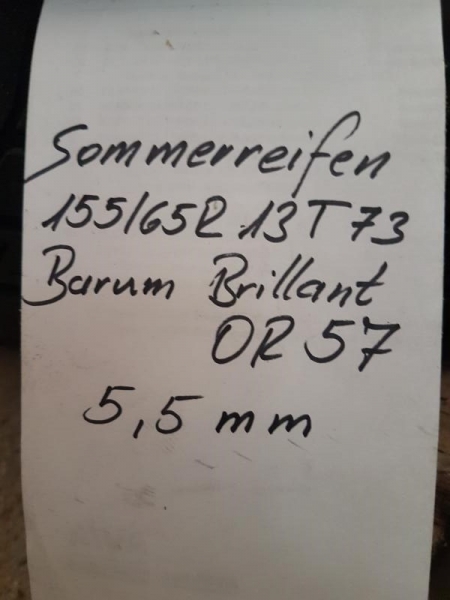 Sommerreifen
155/65R 13 T 73
Barum Brillant
OR 57
5,5 mm